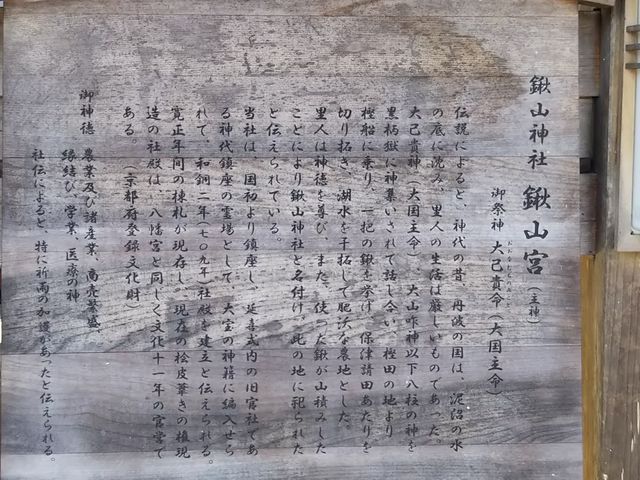 鍬山神社 鍬山宮(主神)
御祭神 大己貴命(大国主命)
伝説によると、神代の昔、丹波の国は、泥沼の水
の底に沈み、里人の生活は厳しいものであった。
大己貴神(大国主命)、大山咋神以下八柱の神を
黒柄嶽に神集いされて話し合い、樫田の地より
樫船に乗り、一把の鍬を挙げ、保津請田あたりを
切り拓き、湖水を干拓して肥沃な農地とした。
里人は神徳を尊び、また、使った鍬が山積みした
ことにより鍬山神社と名付け、此の地に祀られた
と伝えられている。
当社は、国初より鎮座し、延喜式内の旧官社であ
る神代鎮座の霊場として、大宝の神籍に編入せら
れて、和銅二年(七〇九年)社殿を建立と伝えられる。
寛正年間の棟札が現存し、現在の桧皮葺きの権現
造の社殿は、八幡宮と同じく文化十一年の官営で
ある。(京都府登録文化財)
御神徳 農業及び諸産業、商売繁盛、
縁結び、学業、医療の神
社伝によると、特に祈雨の加護があったと伝えられる。